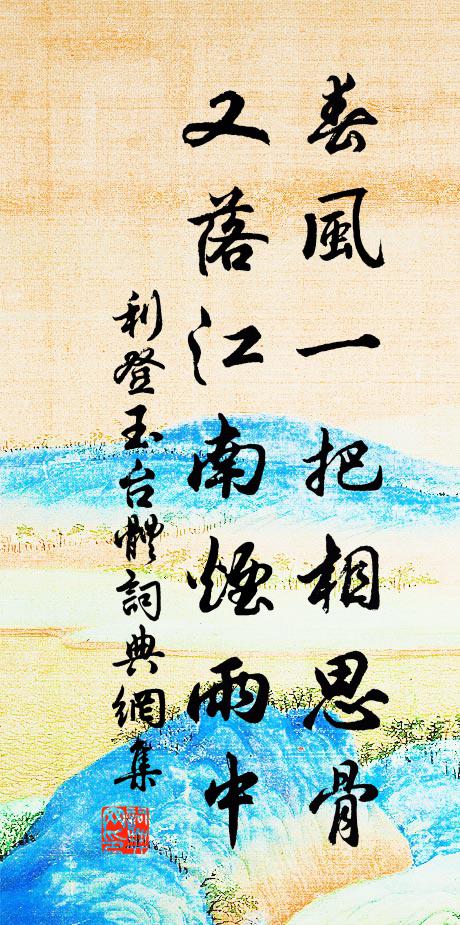 春風一把相思骨
又落江南煙雨中
利登玉台體詞典網集